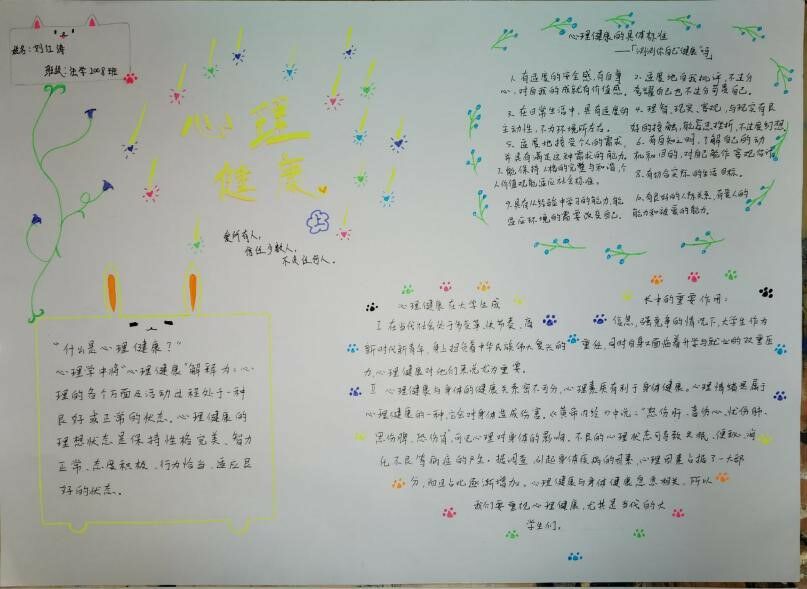 姓名:刘江涛
班级:法学2008班
心理
健康
爱所有人,
信任少数人,
不负任何人。
心理健康的具体标准
——「测测你自己“健康”吗
1. 有适度的安全感,有自尊
心,对自我的成就有价值感。
2. 适度地自我批评,不过分
夸耀自己也不过分苛责自己。
3. 在日常生活中,具有适度的
主动性,不为环境所左右。
4. 理智,现实,客观,与现实有良
好的接触,能容忍挫折,不过度幻想。
5. 适度地接受个人的需求,
并具有满足这种需求的能力。
6. 有自知之明,了解自己的动
机和目的,对自己能作客观估计。
7. 能保持人格的完整与和谐,个
人价值观能适应社会标准。
8. 有切合实际的生活目标。
9. 具有从经验中学习的能力,能
适应环境的需要改变自己。
有良好的人际关系,有爱人的
能力和被爱的能力。
“什么是心理健康?”
心理学中将“心理健康”解释为:心
理的各个方面及活动过程处于一种
良好或正常的状态。心理健康的
理想状态是保持性格完美、智力
正常、态度积极、行为恰当、适应良
好的状态。
心理健康在大学生成
长中的重要作用:
Ⅰ 在当代社会处于伟变革、快节奏、高
信息,强竞争的情况下,大学生作为
新时代新青年,身上担负着中华民族伟大复兴的
重任,同时自身又面临着升学与就业的双重压
力,心理健康对他们来说尤为重要。
Ⅱ 心理健康与身体的健康关系密不可分,心理素质有利于身体健康。心理情绪是属于
心理健康的一种,它会对身体造成伤害。《黄帝内经》中说:“怒伤肝、喜伤心、忧伤肺、
思伤脾、恐伤肾”,可见心理对身体的影响。不良的心理状态可导致失眠、便秘、消
化不良等病症的产生。据调查,引起身体疾病的因素,心理因素占据了一大部
分,而且占比逐渐增加。心理健康与身体健康息息相关,所以
我们要重视心理健康,尤其是当代的大
学生们。